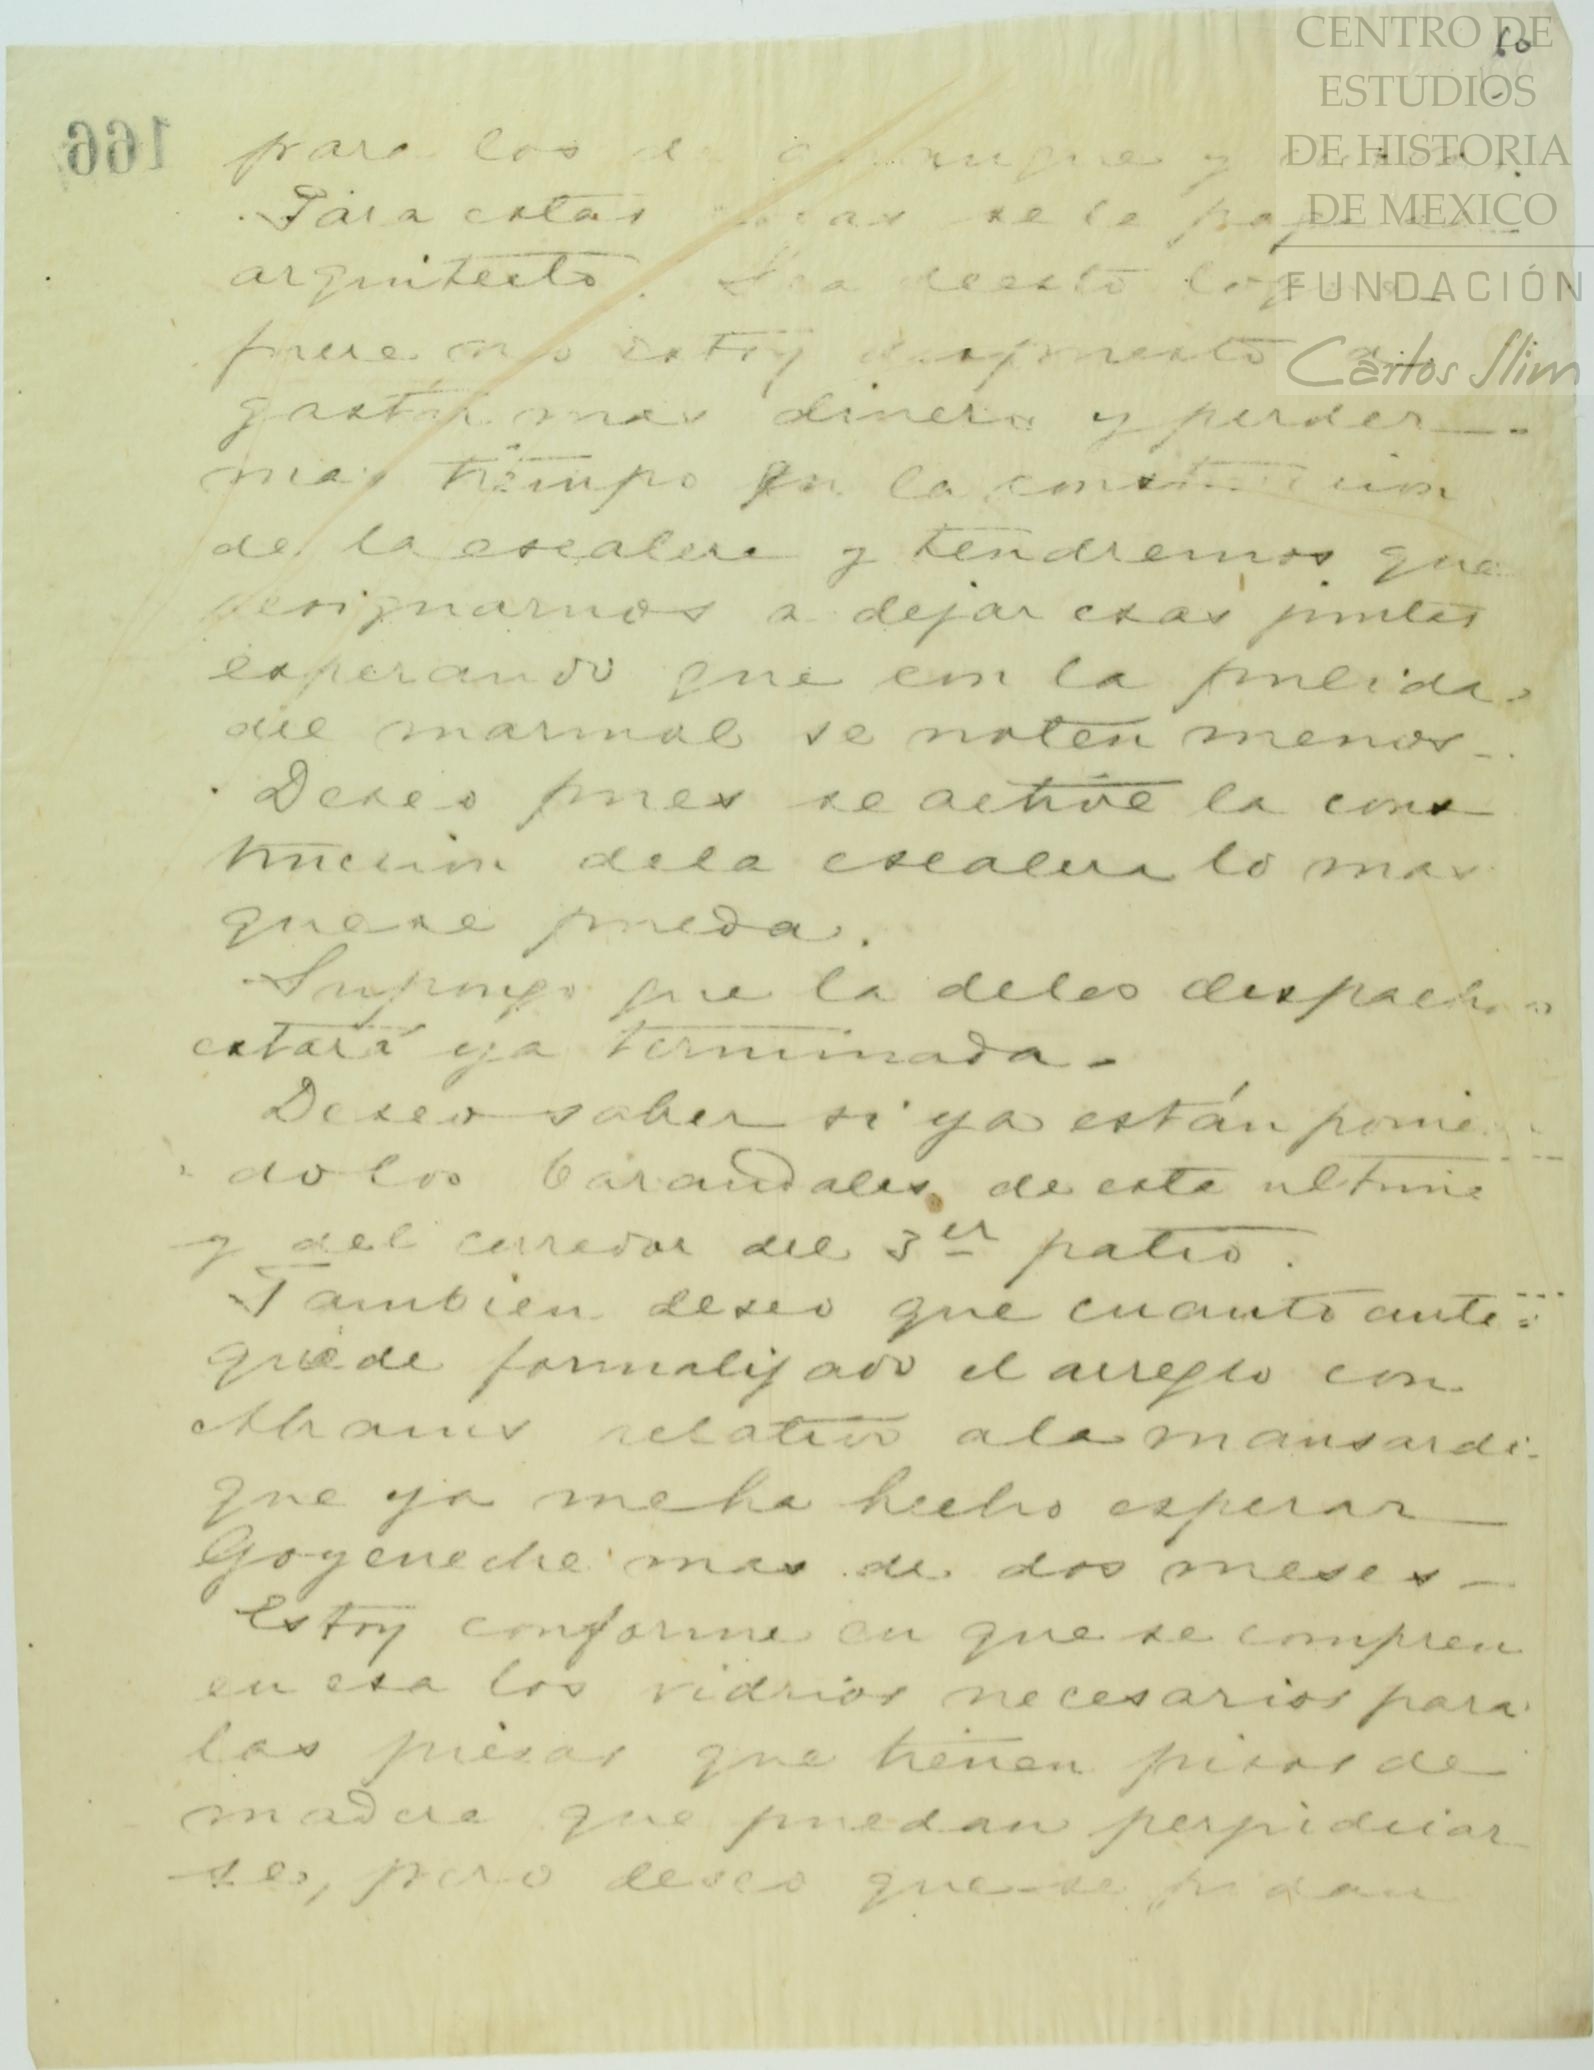 60
166
para los de arranque y
Para estas cosas se le paga al
arquitecto. Sea de esto lo que
fuere no estoy dispuesto a
gastar mas dinero y perder
mas tiempo en la construccion
de la escalera y tendremos que
resignarnos a dejar esas juntas
esperando que con la pulida
del marmol se noten menos
Deseo pues se active la cons
truccion dela escalera lo mas
quese pueda.
Supongo que la delos despachos
estará ya terminada.
Deseo saber si ya están ponien
do los barandales de esta ultima
y del corredor del 3er patio.
Tambien deseo que cuanto antes
quede formalizado el arreglo con
relativo ala mansarda
que ya meha hecho esperar
Goyeneche mas de dos meses
Estoy conforme en que se compren
en esa los vidrios necesarios para
las piezas que tienen pisos de
madera que puedan perjudiciar
se, pero deseo quese pidan
CENTRO DE
ESTUDIOS
DE HISTORIA
DE MEXICO
FUNDACIÓN
Carlos Slim